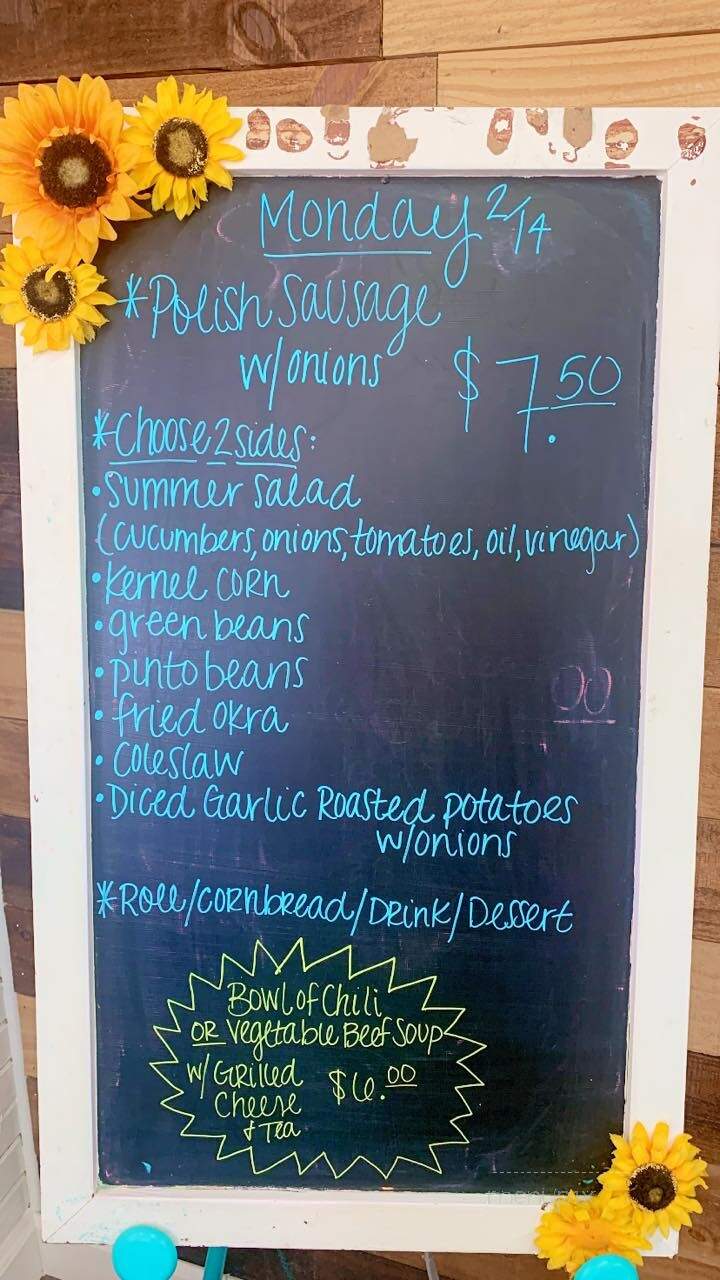 Monday 2/14
*Polish Sausage
w/onions $7.50
*Choose 2 sides:
•Summer Salad
(cucumbers, onions, tomatoes, oil, vinegar)
•kernel corn
•green beans
•pinto beans
•fried okra
•coleslaw
•Diced Garlic Roasted potatoes
w/onions
*Roll/cornbread/Drink/Dessert
Bowl of Chili
OR Vegetable Beef Soup
w/Grilled
Cheese
& Tea
$6.00
00